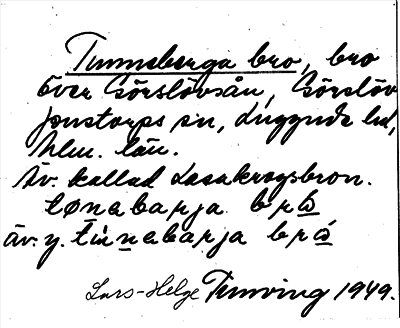 Tunneberga bro, bro
över Görslövsån, Görslöv
Jonstorps sn, Luggude hd,
Mlm. län.
Äv. kallad Lasakrogsbron.
tønabarja brω
äv. y. tinabarja brω
Lars-Helge Tenrving 1949.